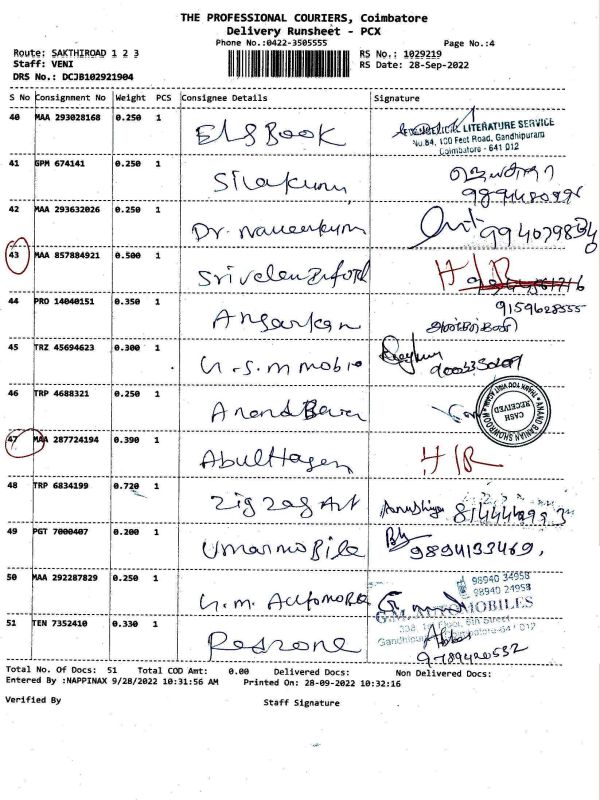 THE PROFESSIONAL COURIERS, Coimbatore
Delivery Runsheet - PCX
Phone No.:0422-3505555 Page No.:4
Route: SAKTHIROAD 1 2 3 RS No.: 1029219
Staff: VENI RS Date: 28-Sep-2022
DRS No.: DCJB102921904
S No Consignment No Weight PCS Consignee Details Signature
40 MAA 293028168 0.250 1 ELS Book LITERATURE SERVICE
No.84, 100 Feet Road, Gandhipuram
Coimbatore - 641 012
41 GPM 674141 0.250 1
42 MAA 293632026 0.250 1 Dr. Naveenkum
43 MAA 857884921 0.500 1 H/R
44 PRO 14040151 0.350 1 9159628555
45 TRZ 45694623 0.300 1 G.S.M mobile
46 TRP 4688321 0.250 1 ANAND BANIAN SHOWROOM
CASH RECEIVED
THANK YOU VISIT AGAIN
47 MAA 287724194 0.390 1 AbulHasen H/R
48 TRP 6834199 0.720 1 Zigzag Art
49 PGT 7000407 0.200 1 Umarmobile 9894133469.
50 MAA 292287829 0.250 1 G.M. Automobile 98940 34958
98940 24958
51 TEN 7352410 0.330 1 Redzone 9789420532
Total No. Of Docs: 51 Total COD Amt: 0.00 Delivered Docs: Non Delivered Docs:
Entered By :NAPPINAX 9/28/2022 10:31:56 AM Printed On: 28-09-2022 10:32:16
Verified By Staff Signature